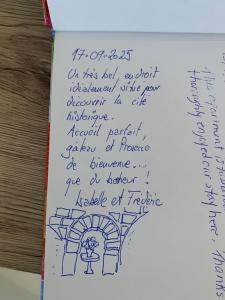 17-09-2025
Un très bel endroit
idéalement situé pour
découvrir la cité
historique.
Accueil parfait,
gâteau et Prosecco
de bienvenue...
que du bonheur !
Isabelle et Frédéric
this apartment is
thoroughly enjoyed our stay here.
Thanks